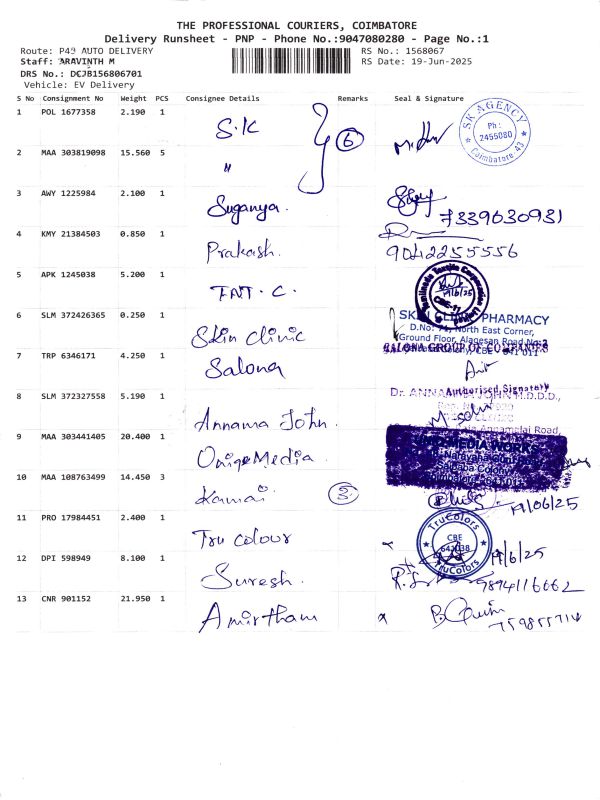 THE PROFESSIONAL COURIERS, COIMBATORE
Delivery Runsheet - PNP - Phone No.:9047080280 - Page No.:1
Route: P49 AUTO DELIVERY
RS No.: 1568067
Staff: ARAVINTH M
RS Date: 19-Jun-2025
DRS No.: DCJB156806701
Vehicle: EV Delivery
S No Consignment No Weight PCS Consignee Details Remarks Seal & Signature
1 POL 1677358 2.190 1 S.K 6
SK AGENCY Ph : 2455080 Coimbatore-43
2 MAA 303819098 15.560 5 "
3 AWY 1225984 2.100 1 Suganya. 7339630931
4 KMY 21384503 0.850 1 Prakash. 9042255556
5 APK 1245038 5.200 1 TNT.C. CBE-11
6 SLM 372426365 0.250 1 Skin Clinic
SKIN CLINIC PHARMACY
D.No: 71, North East Corner,
Ground Floor, Alagesan Road
7 TRP 6346171 4.250 1 Salona
SALONA GROUP OF COMPANIES
Authorised Signatory
8 SLM 372327558 5.190 1 Annama John.
Dr. ANNAMMA JOHN M.D.D.D.,
Annamalai Road,
9 MAA 303441405 20.400 1 OniqeMedia.
MEDIA WORKS
10 MAA 108763499 14.450 3 Kamai 3 19/06/25
11 PRO 17984451 2.400 1 Tru colour
TruColors CBE TruColors 19/6/25
12 DPI 598949 8.100 1 Suresh. 9894116662
13 CNR 901152 21.950 1 Amirtham x